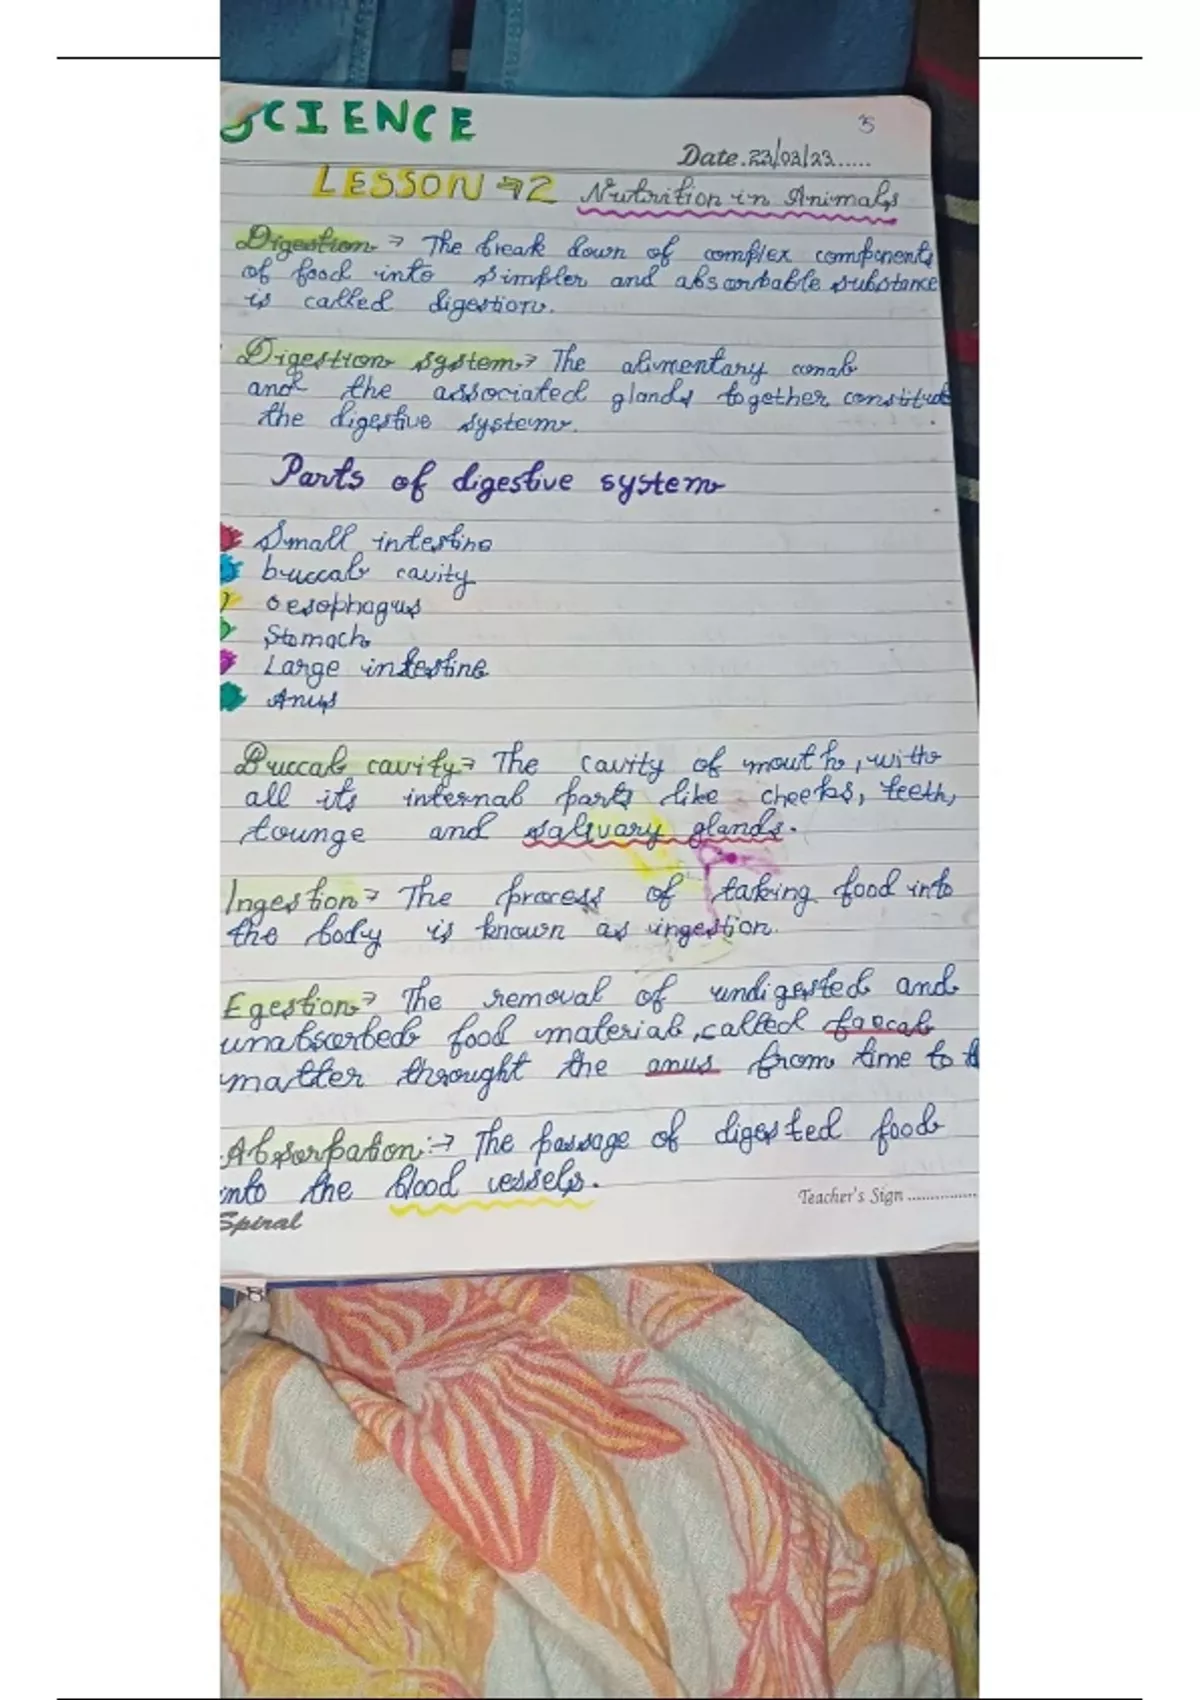 SCIENCE
3
Date.23/02/23......
LESSON → 2 Nutrition in Animals
Digestion → The break down of complex components
of food into simpler and absorbable substance
is called digestion.
Digestion system → The alimentary canal
and the associated glands together constitute
the digestive system.
Parts of digestive system
Small intestine
buccal cavity
oesophagus
Stomach
Large intestine
Anus
Buccal cavity → The cavity of mouth, with
all its internal parts like cheeks, teeth,
tounge and salivary glands.
Ingestion → The process of taking food into
the body is known as ingestion.
Egestion → The removal of undigested and
unabsorbed food material, called faecal
matter throught the anus from time to t
Absorpation :→ The passage of digested food
into the blood vessels.
Teacher's Sign ................
Spiral